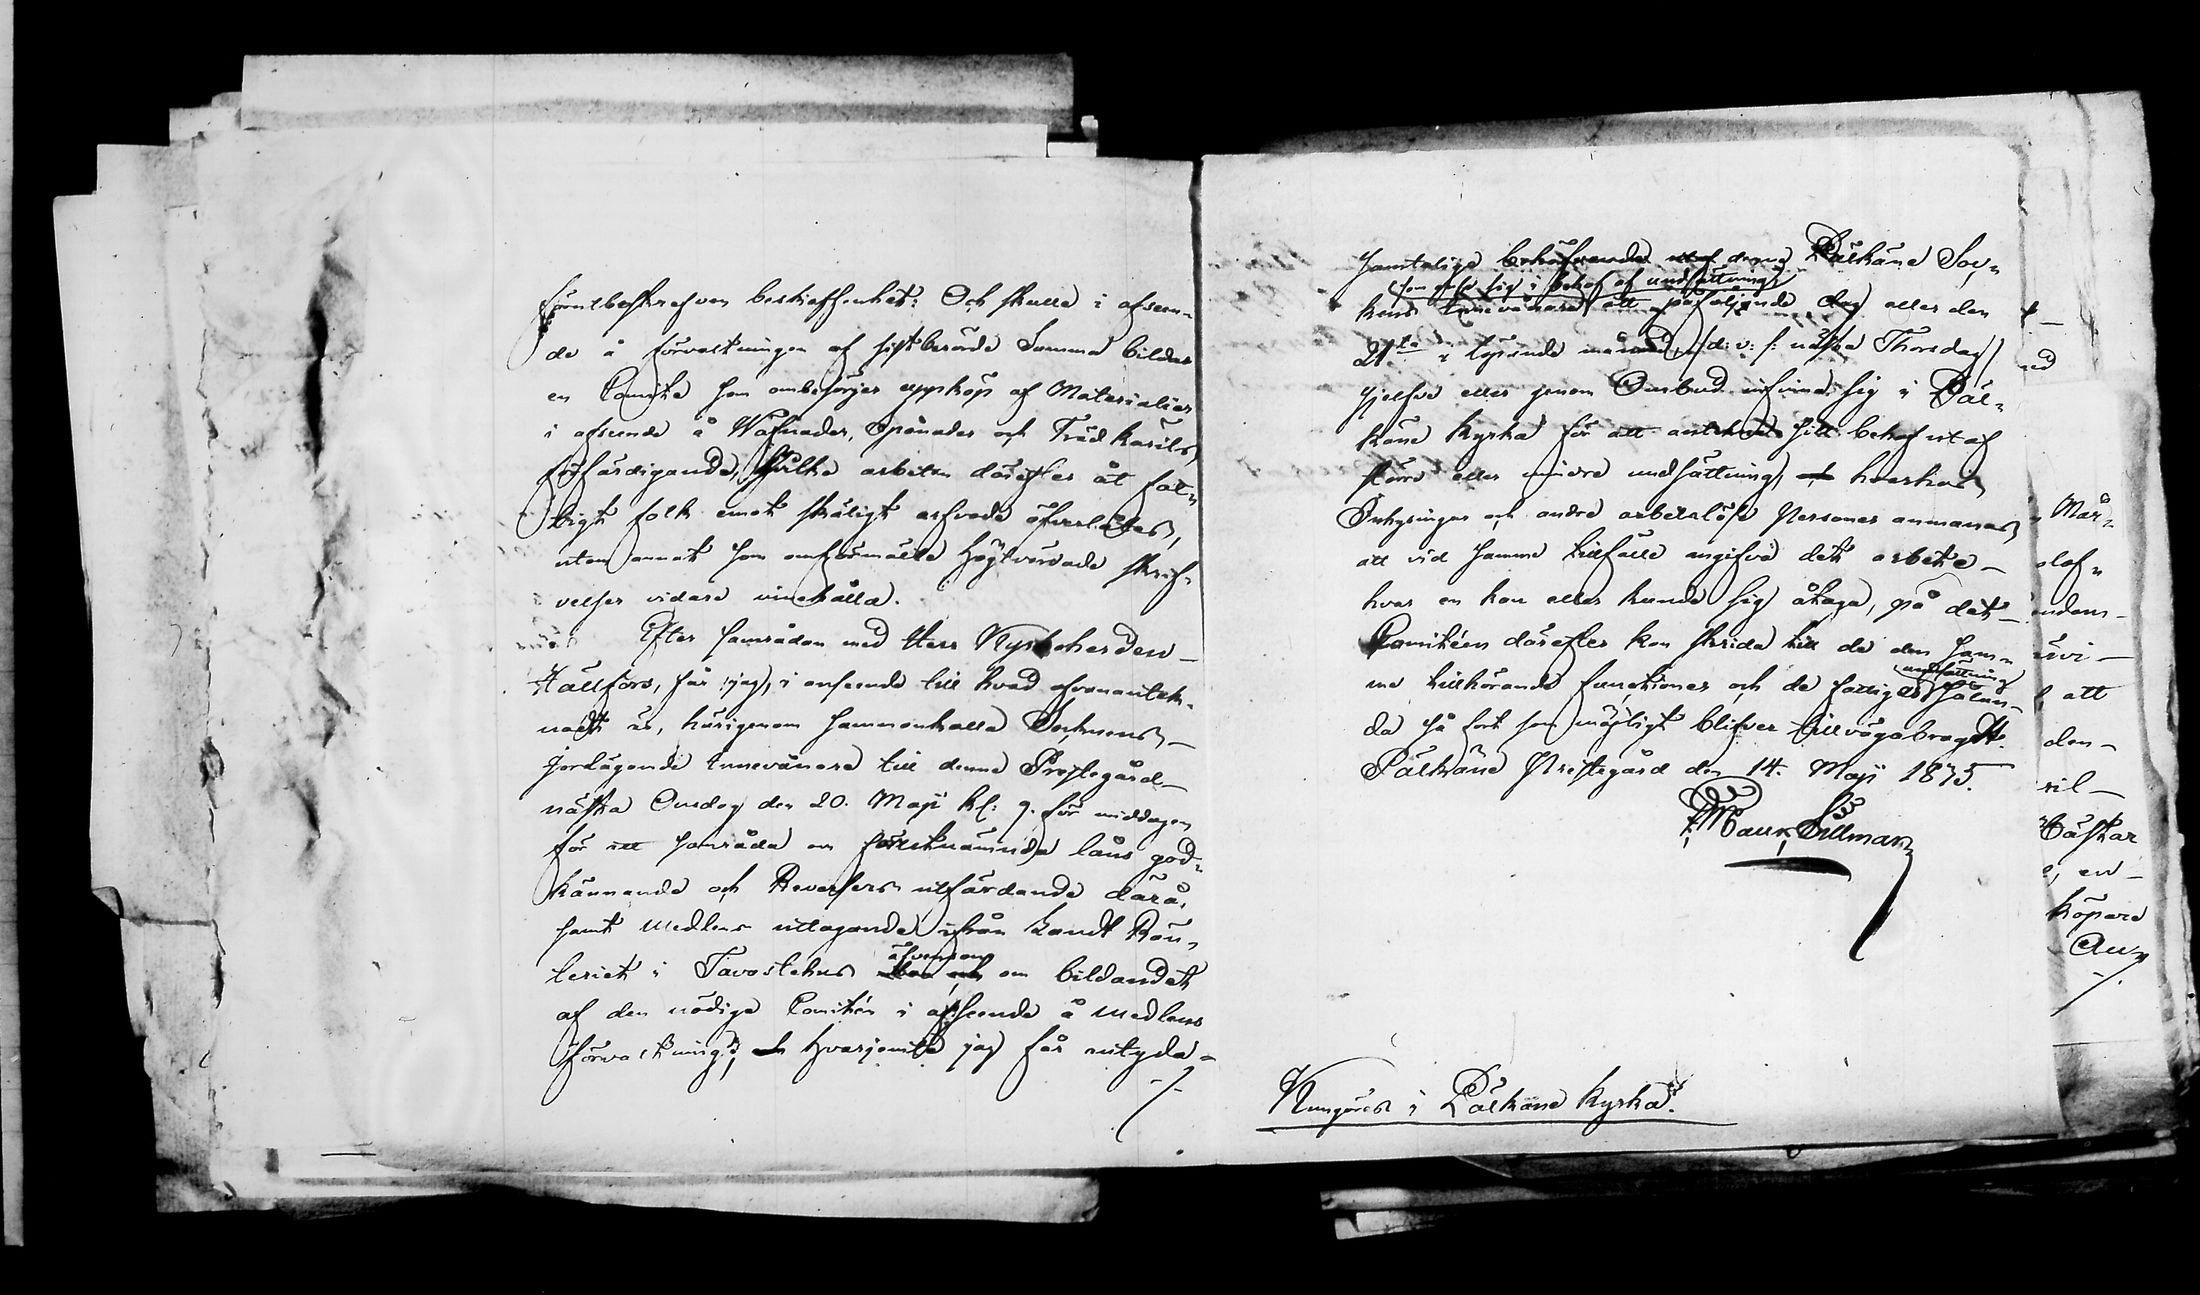 förutbeskrefven beskaffenhet: Och skulle i afseen-
de å förvaltningen af sistberörde Summa bildas
en Comité som ombesörjer uppköp af Materialier
i afseende å Wäfnader, Spånader och Trädkärils
förfärdigande, hvilka arbeten därefter åt fat-
tigt folk emot skäligt arfvode öfverlåtes,
utom annat som omförmälte Högtvördade skrif-
velser vidare innehålla.
Efter samrådan med Herr Kyrkoherden
Hällfors, får jag, i anseende till hvad ofvanantek-
nadt är, härigenom sammankalla Socknens
jordägande Innevånare till denna Prestegård
nästa Onsdag den 20. Maji kl: 9. för middagen
för att samråda om förstnämnda låns god-
kännande och Reversers utfärdande därå,
samt medlens uttagande ifrån Landt Rän-
teriet i Tavastehus
äfvensom
om bildandet
af den nödiga Comitén i afseende å medlens
förvaltning; Hvarjemte jag får antyda
-/-
samtelige Pälkäne Soc-
som anse sig i behof af undsättning
kens Innevånare att påföljande dag eller den
21sta i löpande månad, (d: v: s: nästa Thorsdag)
sjelfve eller genom Ombud infinna sig i Päl-
käne Kyrka för att anteckna sitt behof utaf
större eller mindre undsättning, hvarhos
Inhysingar och andre arbetslöse Personer anmanas
att vid samma tillfälle angifva det arbete
hvar en kan eller kunde sig åtaga, på det
Comitéen därefter kan skrida till de den sam-
undsättning
me tillhörande functioner och de fattigas
da så fort som möjligt blifver tillvägabragdt.
Pälkäne Prestegård den 14. Maji 1875.
Maur. Sillman
Kungöres i Pälkäne Kyrka.
ed
Mår-
olaf-
endom-
ärvi-
att
den-
ril-
Båskar
e, en-
köpare
Au-
/.